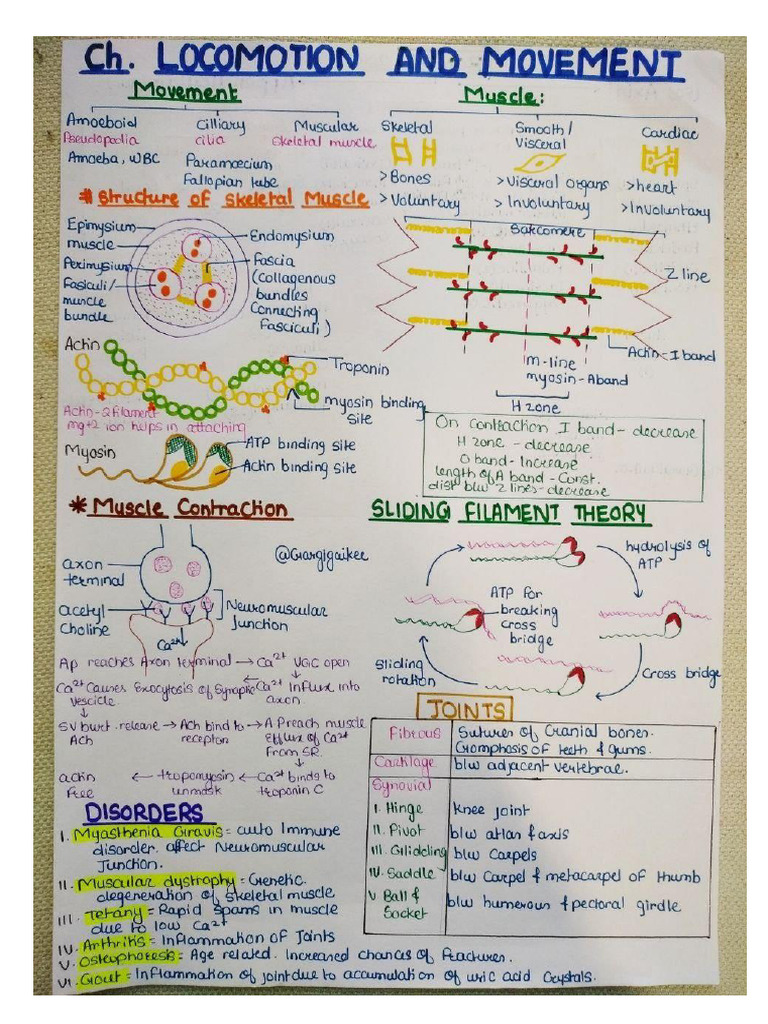 Ch. LOCOMOTION AND MOVEMENT
Movement
Amoeboid Cilliary Muscular
Pseudopodia cilia skeletal muscle
Amoeba, WBC Paramoecium
Fallopian tube
Muscle:
Skeletal Smooth/ Cardiac
Visceral
>Bones >Visceral organs >heart
>Voluntary >Involuntary >Involuntary
# Structure of Skeletal Muscle
Epimysium
muscle
Perimysium
Fasiculi/
muscle
bundle
Endomysium
Fascia
(Collagenous
bundles
Connecting
Fasciculi)
Sarcomere
Z line
Actin-I band
m-line
myosin-Aband
H zone
Actin
Troponin
myosin binding
site
Actin-2 filament
mg+2 ion helps in attaching
Myosin
ATP binding site
Actin binding site
On contraction I band- decrease
H zone - decrease
O band-Increase
length of A band - Const.
dist b/w Z lines-decrease
* Muscle Contraction
@Gargigaikee
axon
terminal
acetyl
Choline
Neuromuscular
Junction
Ca2+
Ap reaches Axon terminal → Ca2+ VGC open
↓
Ca2+ Causes Exocytosis of Synaptic ← Ca2+ Influx into
vescicle. axon.
↓
SV burt. release → Ach bind to → A P reach muscle
Ach receptor Efflux of Ca2+
From SR.
↓
actin ← tropomyosin ← Ca2+ binds to
free unmask troponin C
SLIDING FILAMENT THEORY
hydrolysis of
ATP
ATP for
breaking
cross
bridge
Sliding
rotation
Cross bridge
JOINTS
Fibrous Sutures of Cranial bones.
Gromphosis of teeth & gums.
Cartilage b/w adjacent vertebrae.
Synovial
I. Hinge Knee joint
II. Pivot b/w atlas & axis
III. Glidding b/w Carpels
IV. Saddle b/w Carpel & metacarpel of thumb
V Ball & b/w humerous & pectoral girdle
Socket
DISORDERS
I. Myasthenia Gravis = auto Immune
disorder. affect Neuromuscular
Junction.
II. Muscular dystrophy = Genetic.
degeneration of skeletal muscle
III. Tetany = Rapid Spams in muscle
due to low Ca2+
IV. Arthritis = Inflammation of Joints
V. Osteuphoresis = Age related. Increased chances of fractures.
VI. Gout = Inflammation of joint due to accumulation of uric acid Crystals.